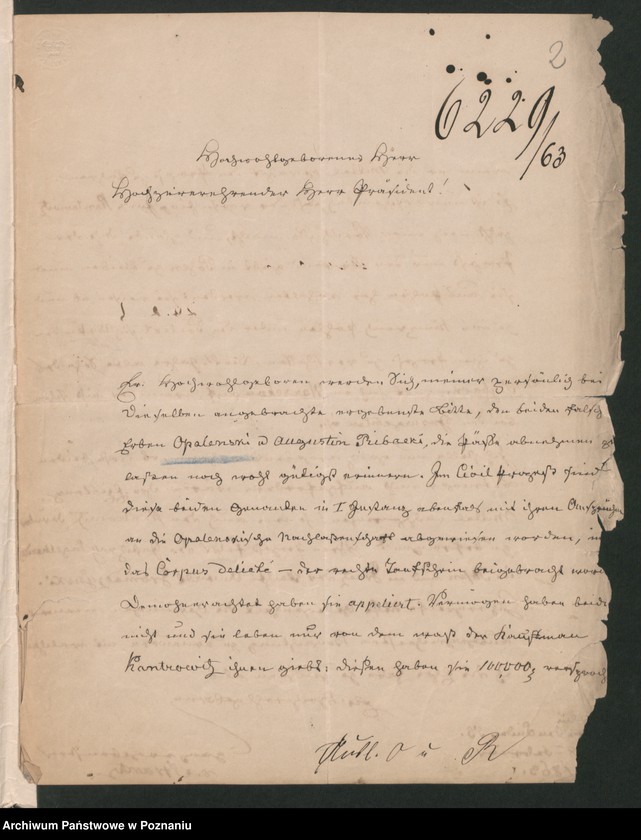 2
6229/63
Hochwohlgeborener Herr
Hochzuverehrender Herr Präsident!
Ew. Hochwohlgeboren werden Sich, meiner persönlich bei
Dieselben angebrachte ergebenste Bitte, den beiden falsch
Erben Opalenski u Augustin Pribacki, die Pässe abnehmen zu
laßen noch wohl gütigst erinnern. Im Civil Prozeß sind
diese beiden Genanten in I Instanz ebenfals mit ihren Ansprüchen
an die Opalenskische Nachlaßenschaft abgewiesen worden, in
das Corpus Delicti – der rechte Taufschein beigebracht word
Demohnerachtet haben sie appelirt. Vermögen haben beide
nicht und sie leben nur von dem waß der Kaufman
Kantrowitz ihnen giebt; diesen haben sie 100,000 versproch
Publ. O u R
Archiwum Państwowe w Poznaniu